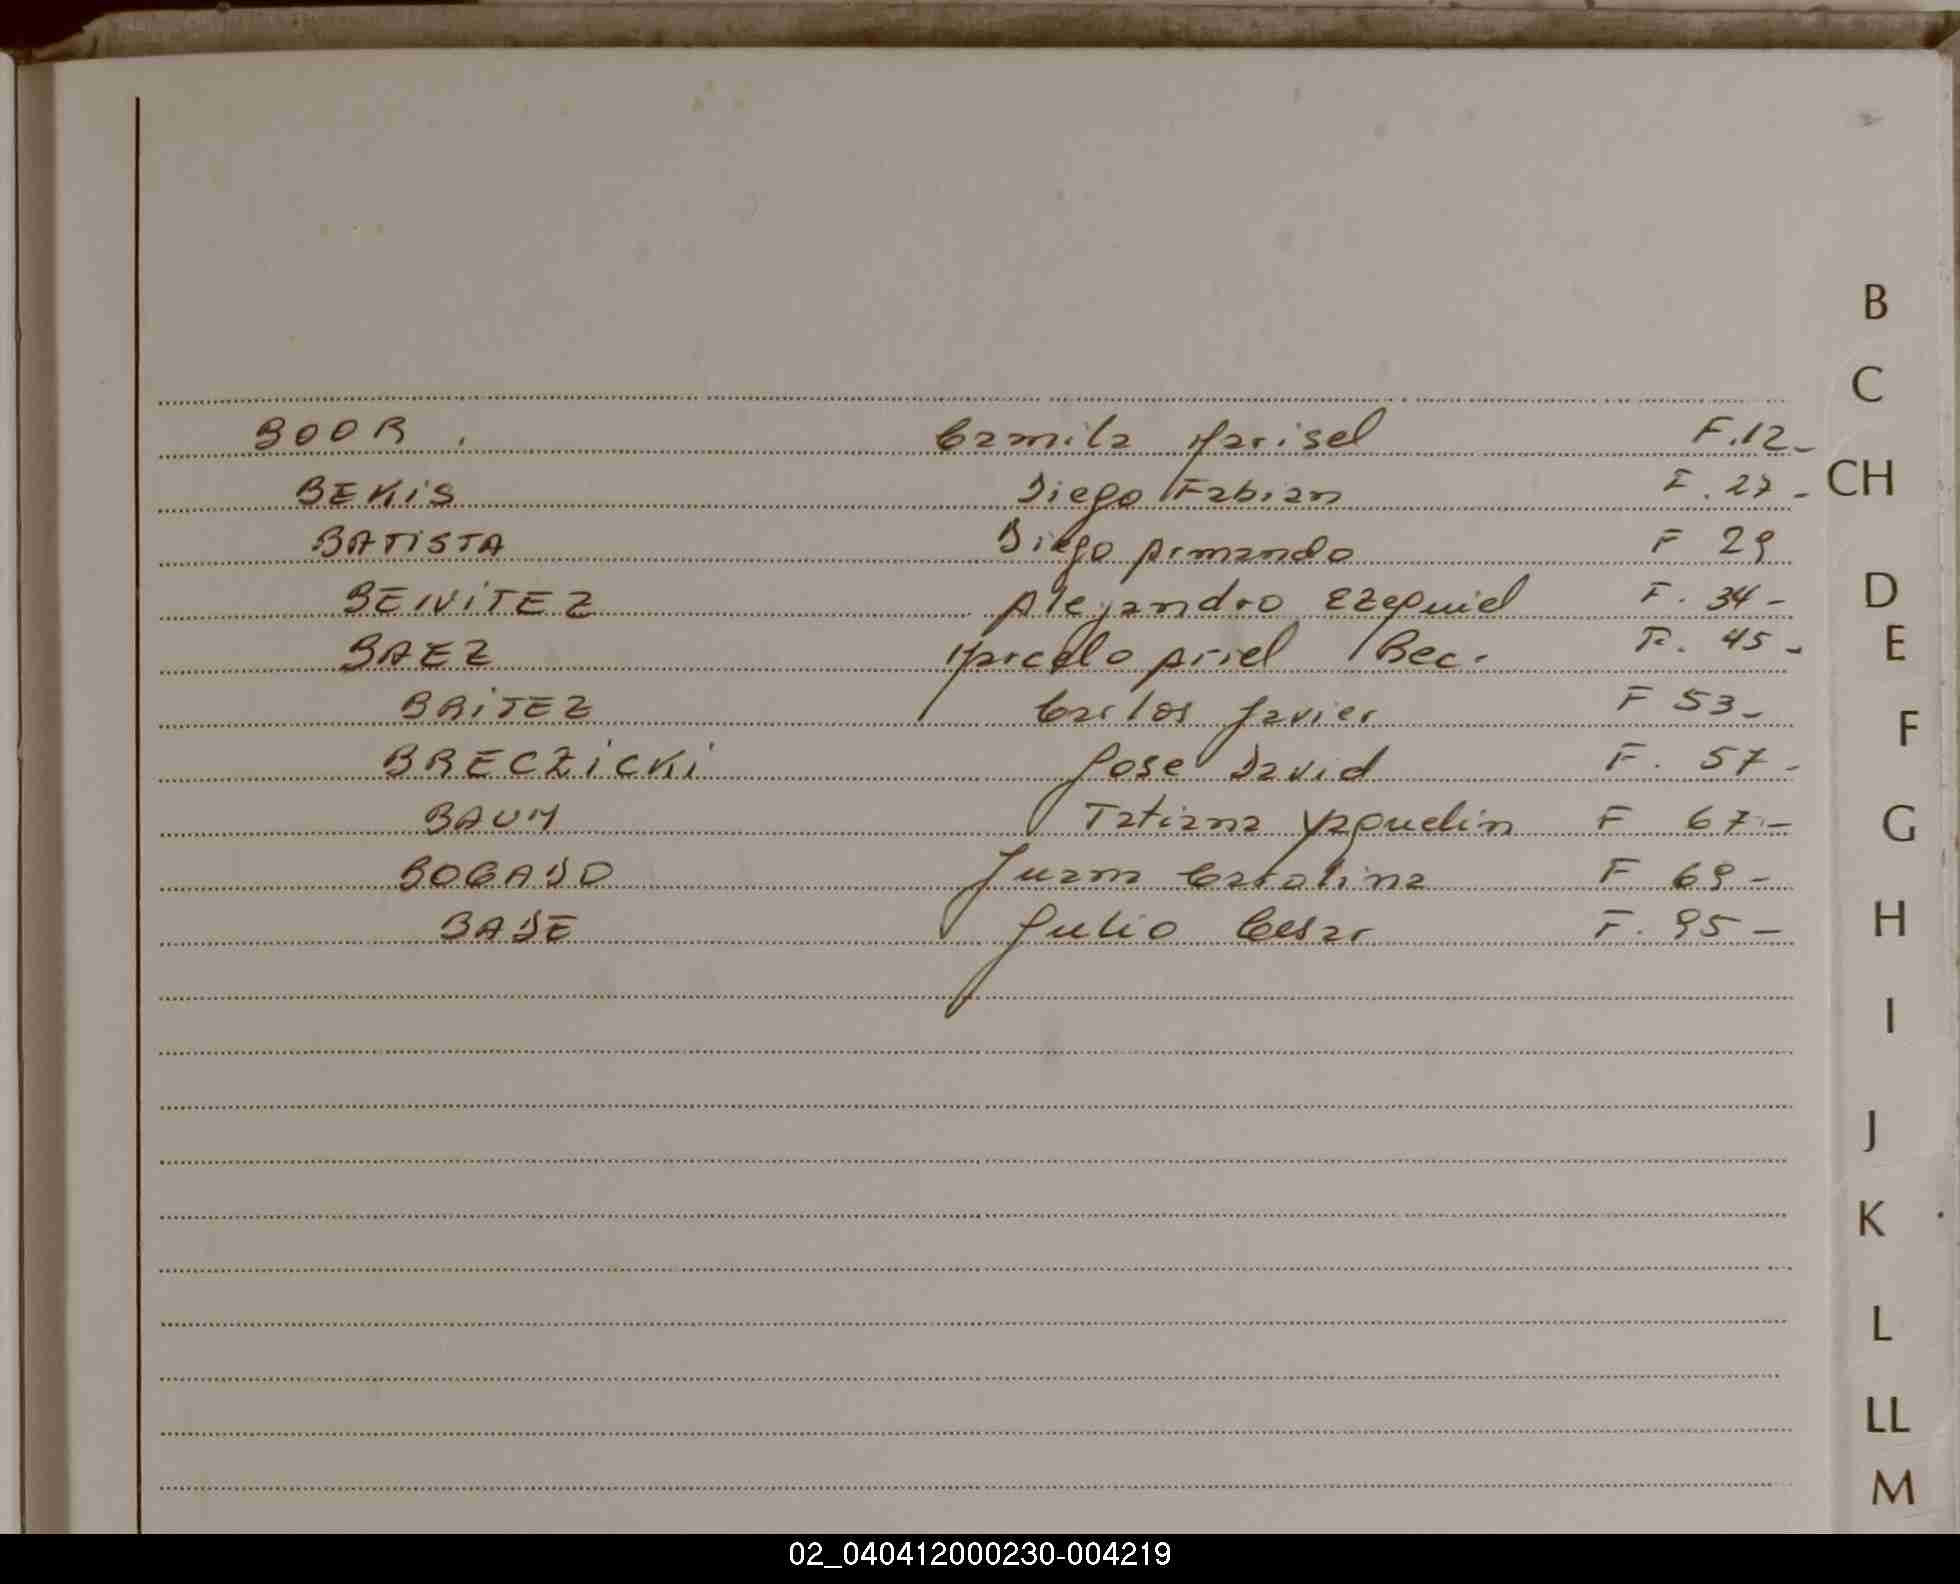 BOOR. Camila Marisel F.12-
BEKiS Diego Fabian F. 27-
BATiSTA Diego Armando F 29
BENiTEZ Alejandro Ezequiel F. 34-
BAEZ Marcelo Ariel Rec. F. 45-
BRiTEZ Carlos Javier F 53-
BRECZiCKi Jose David F. 57-
BAUM Tatiana Yaquelin F 67-
BOGADO Juana Carolina F 69-
BADE Julio Cesar F. 95-
B
C
CH
D
E
F
G
H
I
J
K
L
LL
M
02_040412000230-004219